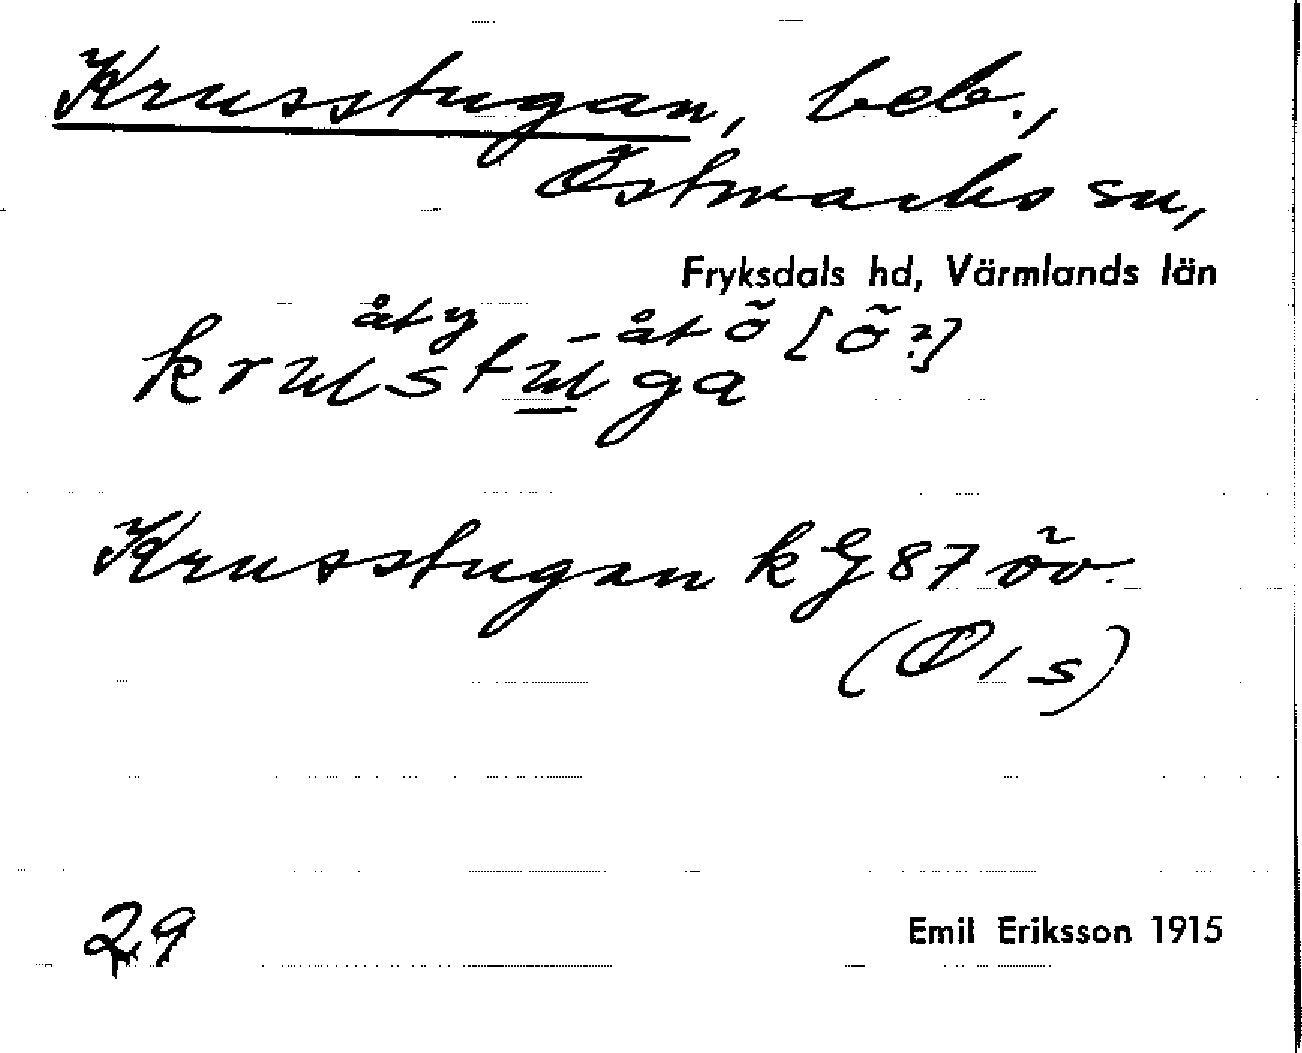 Krusstugan, beb.,
Östmarks sn,
Fryksdals hd, Värmlands län
åty - åtõ [õ?]
krustuga
Krusstugan kG87 öv.
(Ö1s)
29
Emil Eriksson 1915